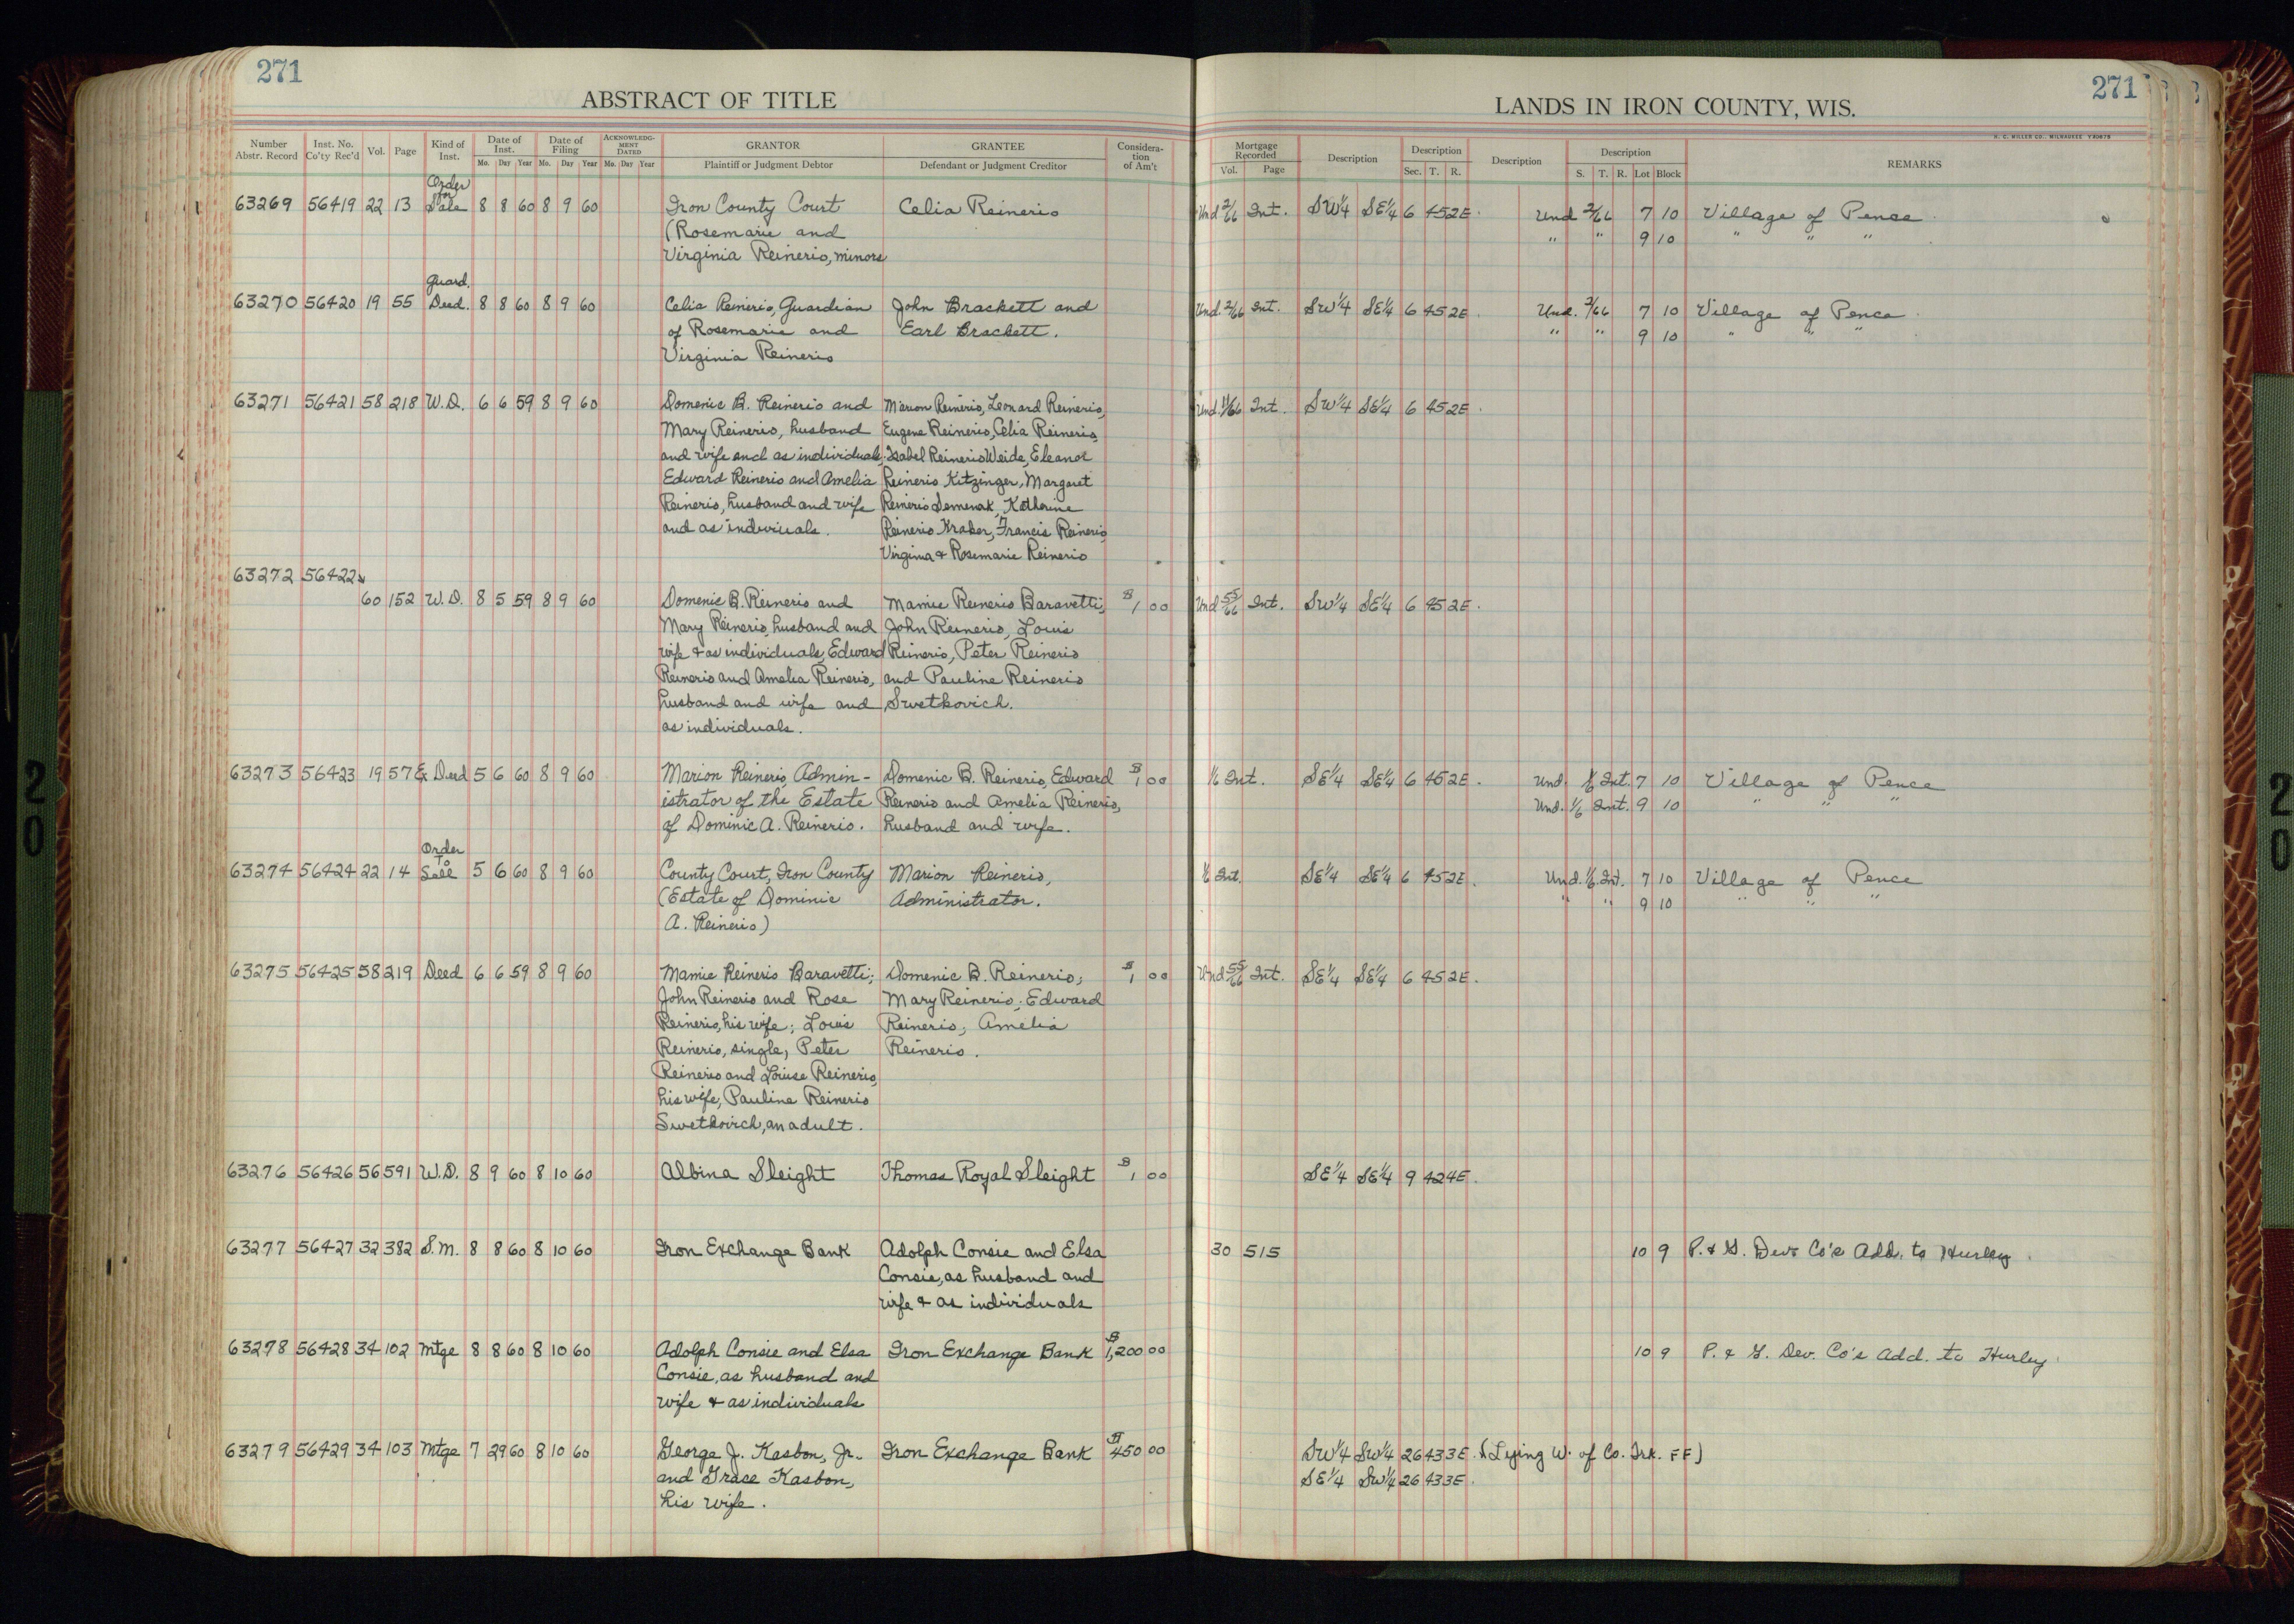 271
ABSTRACT OF TITLE
LANDS IN IRON COUNTY, WIS.
271
H. C. MILLER CO., MILWAUKEE Y80679
Number Abstr. Record Inst. No. Co'ty Rec'd Vol. Page Kind of Inst. Date of Inst. Mo. Day Year Date of Filing Mo. Day Year ACKNOWLEDGMENT DATED Mo. Day Year GRANTOR Plaintiff or Judgment Debtor GRANTEE Defendant or Judgment Creditor Consideration of Am't Mortgage Recorded Vol. Page Description Description Sec. T. R. Description Description S. T. R. Lot Block REMARKS
Order
for
63269 56419 22 13 Sale 8 8 60 8 9 60 Iron County Court Celia Reinerio Und 2/66 Int. SW1/4 SE1/4 6 45 2E. Und 2/66 7 10 Village of Pence
(Rosemarie and " " 9 10 " " "
Virginia Reinerio, minors
Guard.
63270 56420 19 55 Deed. 8 8 60 8 9 60 Celia Reinerio, Guardian John Brackett and Und. 2/66 Int. SW1/4 SE1/4 6 45 2E. Und. 2/66 7 10 Village of Pence
of Rosemarie and Earl Brackett. " " 9 10 " " "
Virginia Reinerio
63271 56421 58 218 W.D. 6 6 59 8 9 60 Domenic B. Reinerio and Marion Reinerio, Leonard Reinerio, Und. 11/66 Int. SW1/4 SE1/4 6 45 2E.
Mary Reinerio, husband Eugene Reinerio, Celia Reinerio,
and wife and as individuals; Isabel Reinerio Weide, Eleanor
Edward Reinerio and Amelia Reinerio Kitzinger, Margaret
Reinerio, husband and wife Reinerio Semenak, Katherine
and as indiviuals. Reinerio Kraker, Francis Reinerio,
Virgina & Rosemarie Reinerio
63272 56422
60 152 W.D. 8 5 59 8 9 60 Domenic B. Reinerio and Mamie Reinerio Baravetti, $1 00 Und 55/66 Int. SW1/4 SE1/4 6 45 2E.
Mary Reinerio, husband and John Reinerio, Louis
wife & as individuals, Edward Reinerio, Peter Reinerio
Reinerio and Amelia Reinerio, and Pauline Reinerio
husband and wife and Swetkovich.
as individuals.
63273 56423 19 57 Ex Deed 5 6 60 8 9 60 Marion Reinerio, Admin- Domenic B. Reinerio, Edward $1 00 1/6 Int. SE1/4 SE1/4 6 45 2E. Und 1/6 Int. 7 10 Village of Pence
istrator of the Estate Reinerio and Amelia Reinerio, Und. 1/6 Int. 9 10 " " "
of Dominic A. Reinerio. husband and wife.
Order
To
63274 56424 22 14 Sell 5 6 60 8 9 60 County Court, Iron County Marion Reinerio, 1/6 Int. SE1/4 SE1/4 6 45 2E. Und. 1/6 Int. 7 10 Village of Pence
(Estate of Dominic Administrator. " " 9 10 " " "
A. Reinerio)
63275 56425 58 219 Deed 6 6 59 8 9 60 Mamie Reinerio Baravetti; Domenic B. Reinerio; $1 00 Und 55/66 Int. SE1/4 SE1/4 6 45 2E.
John Reinerio and Rose Mary Reinerio; Edward
Reinerio, his wife; Louis Reinerio; Amelia
Reinerio, single, Peter Reinerio.
Reinerio and Louise Reinerio,
his wife, Pauline Reinerio
Swetkovich, an adult.
63276 56426 56 591 W.D. 8 9 60 8 10 60 Albina Sleight Thomas Royal Sleight $1 00 SE1/4 SE1/4 9 42 4E.
63277 56427 32 382 S.M. 8 8 60 8 10 60 Iron Exchange Bank Adolph Consie and Elsa 30 515 10 9 P. & G. Dev. Co's Add. to Hurley.
Consie, as husband and
wife & as individuals
63278 56428 34 102 Mtge 8 8 60 8 10 60 Adolph Consie and Elsa Iron Exchange Bank $1,200 00 10 9 P. & G. Dev. Co's Add. to Hurley
Consie, as husband and
wife & as individuals
63279 56429 34 103 Mtge 7 29 60 8 10 60 George J. Kasbon, Jr. Iron Exchange Bank $450 00 SW1/4 SW1/4 26 43 3E. (Lying W. of Co. Trk. FF)
and Grace Kasbon, SE1/4 SW1/4 26 43 3E.
his wife.
20
20